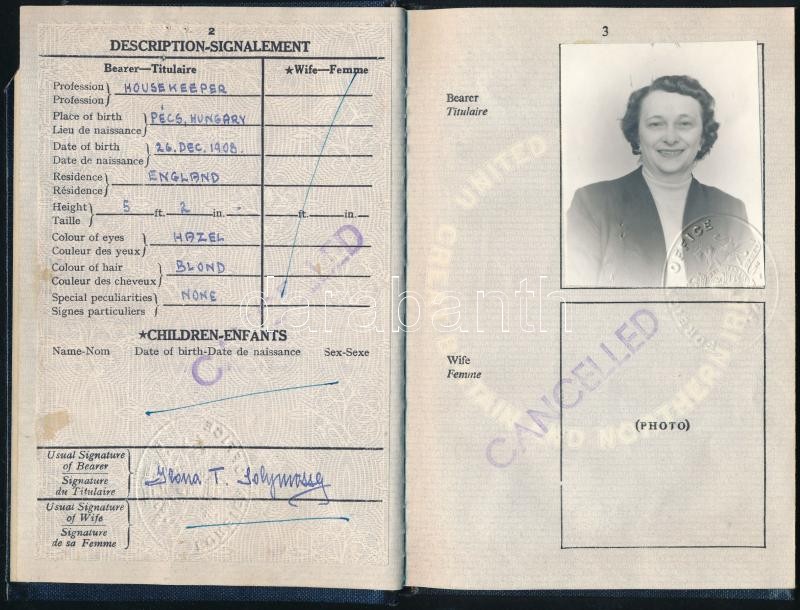 2
DESCRIPTION-SIGNALEMENT
Bearer—Titulaire ★Wife—Femme
Profession
Profession HOUSEKEEPER
Place of birth
Lieu de naissance PÉCS, HUNGARY
Date of birth
Date de naissance 26. DEC. 1908.
Residence
Résidence ENGLAND
Height
Taille 5 ft. 2 in. ft. in.
Colour of eyes
Couleur des yeux HAZEL
Colour of hair
Couleur des cheveux BLOND
Special peculiarities
Signes particuliers NONE
★CHILDREN-ENFANTS
Name-Nom Date of birth-Date de naissance Sex-Sexe
CANCELLED
Usual Signature
of Bearer
Signature
du Titulaire
Ilona T. Solymossy
Usual Signature
of Wife
Signature
de sa Femme
3
Bearer
Titulaire
UNITED
OFFICE
FOREIGN
Wife
Femme
CANCELLED
AND NORTHERN
(PHOTO)
darabanth